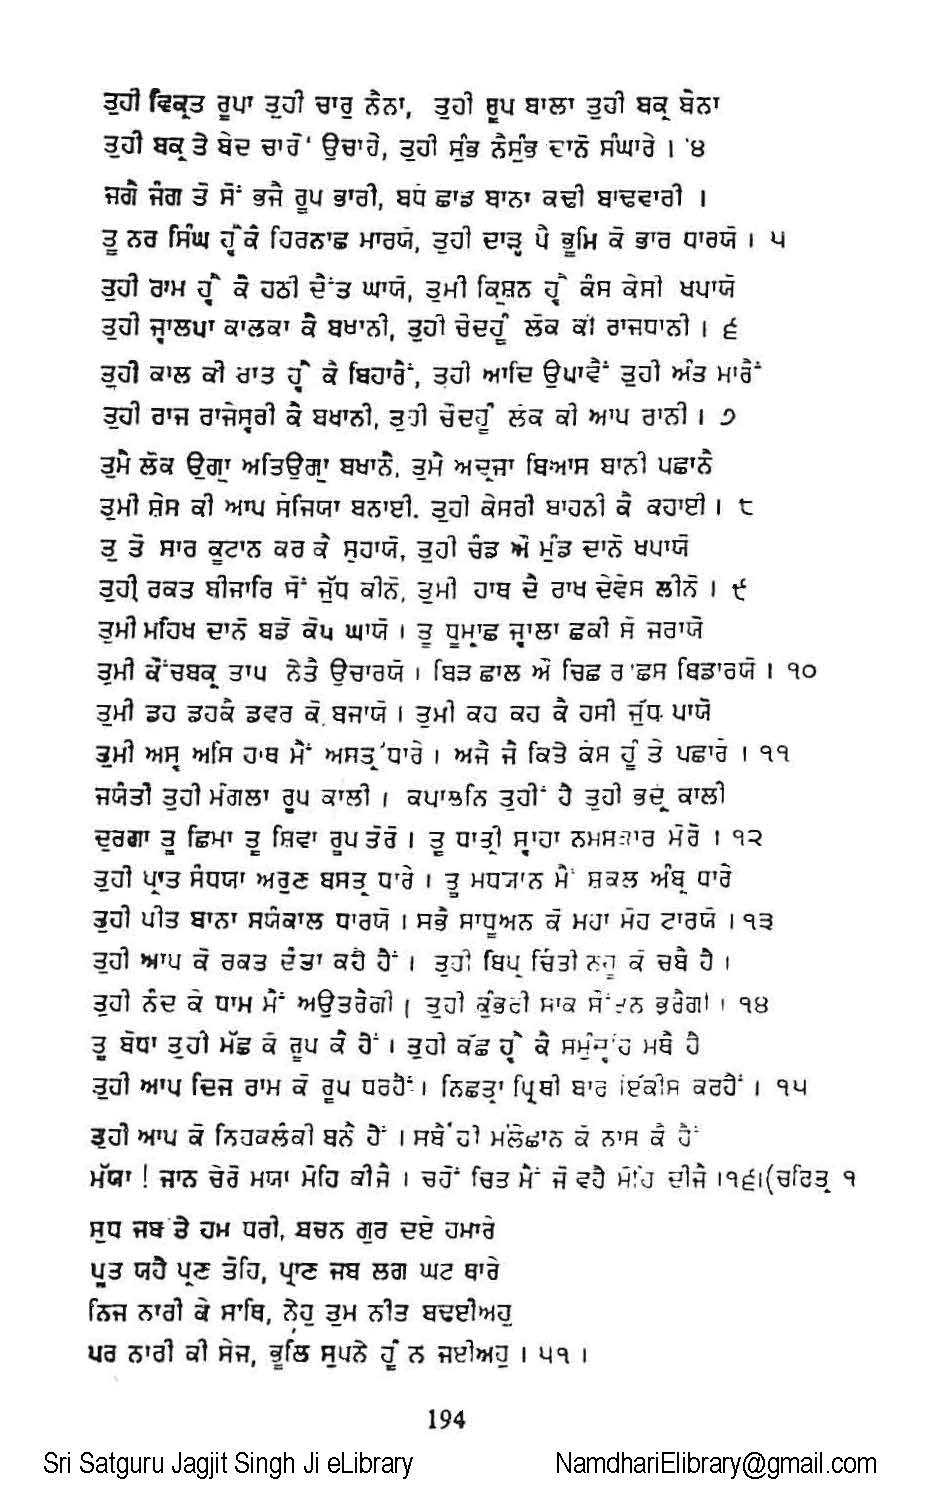 ਤੁਹੀ ਵਿਕ੍ਰਤ ਰੂਪਾ ਤੁਹੀ ਚਾਰੁ ਨੈਨਾ, ਤੁਹੀ ਰੂਪ ਬਾਲਾ ਤੁਹੀ ਬਕ੍ਰ ਬੈਨਾ
ਤੁਹੀ ਬਕ੍ਰ ਤੇ ਬੇਦ ਚਾਰੋਂ ਉਚਾਰੇ, ਤੁਹੀ ਸੁੰਭ ਨੈਸੁੰਭ ਦਾਨੋ ਸੰਘਾਰੇ । ੪
ਜਗੈ ਜੰਗ ਤੋ ਸੋਂ ਭਜੈ ਰੂਪ ਭਾਰੀ, ਬਧੇ ਛਾਡ ਬਾਨਾ ਕਢੀ ਬਾਢਵਾਰੀ ।
ਤੂ ਨਰ ਸਿੰਘ ਹ੍ਵੈਕੈ ਹਿਰਨਾਛ ਮਾਰਯੋ, ਤੁਹੀ ਦਾੜ੍ਹ ਪੈ ਭੂਮਿ ਕੋ ਭਾਰ ਧਾਰਯੋ । ੫
ਤੁਹੀ ਰਾਮ ਹ੍ਵੈ ਕੈ ਹਠੀ ਦੈਂਤ ਘਾਯੋ, ਤੁਮੀ ਕ੍ਰਿਸ਼ਨ ਹ੍ਵੈ ਕੰਸ ਕੇਸੀ ਖਪਾਯੋ
ਤੁਹੀ ਜ੍ਵਾਲਪਾ ਕਾਲਕਾ ਕੈ ਬਖਾਨੀ, ਤੁਹੀ ਚੋਦਹੂੰ ਲੋਕ ਕੀ ਰਾਜਧਾਨੀ । ੬
ਤੁਹੀ ਕਾਲ ਕੀ ਰਾਤ ਹ੍ਵੈ ਕੈ ਬਿਹਾਰੈਂ, ਤੁਹੀ ਆਦਿ ਉਪਾਵੈਂ ਤੁਹੀ ਅੰਤ ਮਾਰੈਂ
ਤੁਹੀ ਰਾਜ ਰਾਜੇਸ੍ਵਰੀ ਕੈ ਬਖਾਨੀ, ਤੁਹੀ ਚੌਦਹੂੰ ਲੋਕ ਕੀ ਆਪ ਰਾਨੀ । ੭
ਤੁਮੈ ਲੋਕ ਉਗ੍ਰਾ ਅਤਿਉਗ੍ਰਾ ਬਖਾਨੈ, ਤੁਮੈ ਅਦ੍ਰਜਾ ਬਿਆਸ ਬਾਨੀ ਪਛਾਨੈ
ਤੁਮੀ ਸ਼ੇਸ ਕੀ ਆਪ ਸੇਜਿਯਾ ਬਨਾਈ. ਤੁਹੀ ਕੇਸਰੀ ਬਾਹਨੀ ਕੈ ਕਹਾਈ । ੮
ਤੁ ਤੋ ਸਾਰ ਕੂਟਾਨ ਕਰ ਕੈ ਸੁਹਾਯੋ, ਤੁਹੀ ਚੰਡ ਔ ਮੁੰਡ ਦਾਨੋ ਖਪਾਯੋ
ਤੁਹੀ ਰਕਤ ਬੀਜਾਰਿ ਸੋਂ ਜੁੱਧ ਕੀਨੋ, ਤੁਮੀ ਹਾਥ ਦੈ ਰਾਖ ਦੇਵੇਸ ਲੀਨੋ । ੯
ਤੁਮੀ ਮਹਿਖ ਦਾਨੋ ਬਡੋ ਕੋਪ ਘਾਯੋ । ਤੂ ਧੂਮ੍ਰਾਛ ਜ੍ਵਾਲਾ ਛਕੀ ਸੋ ਜਰਾਯੋ
ਤੁਮੀ ਕੌਂਚਬਕ੍ਰ ਤਾਪ ਨੇਤੈ ਉਚਾਰਯੋ । ਬਿੜ ਛਾਲ ਔ ਚਿਛ ਰਾਛਸ ਬਿਡਾਰਯੋ । ੧੦
ਤੁਮੀ ਡਹ ਡਹਕੈ ਡਵਰ ਕੋ ਬਜਾਯੋ । ਤੁਮੀ ਕਹ ਕਹ ਕੈ ਹਸੀ ਜੁੱਧ ਪਾਯੋ
ਤੁਮੀ ਅਸ੍ਵ ਅਸਿ ਹਾਥ ਮੈਂ ਅਸਤ੍ਰ ਧਾਰੇ । ਅਜੈ ਜੈ ਕਿਤੇ ਕੇਸ ਹੂੰ ਤੇ ਪਛਾਰੇ । ੧੧
ਜਯੰਤੀ ਤੁਹੀ ਮੰਗਲਾ ਰੂਪ ਕਾਲੀ । ਕਪਾਲਨਿ ਤੁਹੀਂ ਹੈ ਤੁਹੀ ਭਦ੍ਰ ਕਾਲੀ
ਦੁਰਗਾ ਤੂ ਛਿਮਾ ਤੂ ਸ਼ਿਵਾ ਰੂਪ ਤੋਰੋ । ਤੂ ਧਾਤ੍ਰੀ ਸ੍ਵਾਹਾ ਨਮਸਕਾਰ ਮੋਰੋ । ੧੨
ਤੁਹੀ ਪ੍ਰਾਤ ਸੰਧਯਾ ਅਰੁਣ ਬਸਤ੍ਰ ਧਾਰੇ । ਤੂ ਮਧਯਾਨ ਮੈਂ ਸ਼ਕਲ ਅੰਬ੍ਰ ਧਾਰੇ
ਤੁਹੀ ਪੀਤ ਬਾਨਾ ਸਯੰਕਾਲ ਧਾਰਯੋ । ਸਭੈ ਸਾਧੂਅਨ ਕੋ ਮਹਾ ਮੋਹ ਟਾਰਯੋ । ੧੩
ਤੁਹੀ ਆਪ ਕੋ ਰਕਤ ਦੰਤਾ ਕਹੈ ਹੈਂ । ਤੁਹੀ ਬਿਪ੍ਰ ਚਿੰਤੀ ਨਹੂ ਕੋ ਚਬੈ ਹੈ ।
ਤੁਹੀ ਨੰਦ ਕੇ ਧਾਮ ਮੈਂ ਅਉਤਰੈਗੀ । ਤੁਹੀ ਕੁੰਭਰੀ ਸਾਕ ਸੋਂ ਤਨ ਭਰੈਗੀ । ੧੪
ਤੂ ਬੋਧਾ ਤੁਹੀ ਮੱਛ ਕੋ ਰੂਪ ਕੈ ਹੈਂ । ਤੁਹੀ ਕੱਛ ਹ੍ਵੈ ਕੈ ਸਮੁੰਦ੍ਰਾਹ ਮਥੈ ਹੈ
ਤੁਹੀ ਆਪ ਦਿਜ ਰਾਮ ਕੋ ਰੂਪ ਧਰਹੈਂ । ਨਿਛਤ੍ਰਾ ਪ੍ਰਿਥੀ ਬਾਰ ਇੱਕੀਸ ਕਰਹੈਂ । ੧੫
ਤੁਹੀ ਆਪ ਕੋ ਨਿਹਕਲੰਕੀ ਬਨੈ ਹੈਂ । ਸਬੈਂ ਹੀ ਮਲੇਛਾਨ ਕੋ ਨਾਸ ਕੈ ਹੈਂ
ਮੱਯਾ ! ਜਾਨ ਚੇਰੋ ਮਯਾ ਮੋਹਿ ਕੀਜੈ । ਚਹੋਂ ਚਿਤ ਮੈਂ ਜੋ ਵਹੈ ਮੋਹਿ ਦੀਜੈ ।੧੬।(ਚਰਿਤ੍ਰ ੧
ਸੁਧ ਜਬ ਤੇ ਹਮ ਧਰੀ, ਬਚਨ ਗੁਰ ਦਏ ਹਮਾਰੇ
ਪੂਤ ਯਹੈ ਪ੍ਰਣ ਤੋਹਿ, ਪ੍ਰਾਣ ਜਬ ਲਗ ਘਟ ਥਾਰੇ
ਨਿਜ ਨਾਰੀ ਕੇ ਸਾਥਿ, ਨੇਹੁ ਤੁਮ ਨੀਤ ਬਢਈਅਹੁ
ਪਰ ਨਾਰੀ ਕੀ ਸੇਜ, ਭੂਲਿ ਸੁਪਨੇ ਹੂੰ ਨ ਜਈਅਹੁ । ੫੧ ।
194
Sri Satguru Jagjit Singh Ji eLibrary NamdhariElibrary@gmail.com